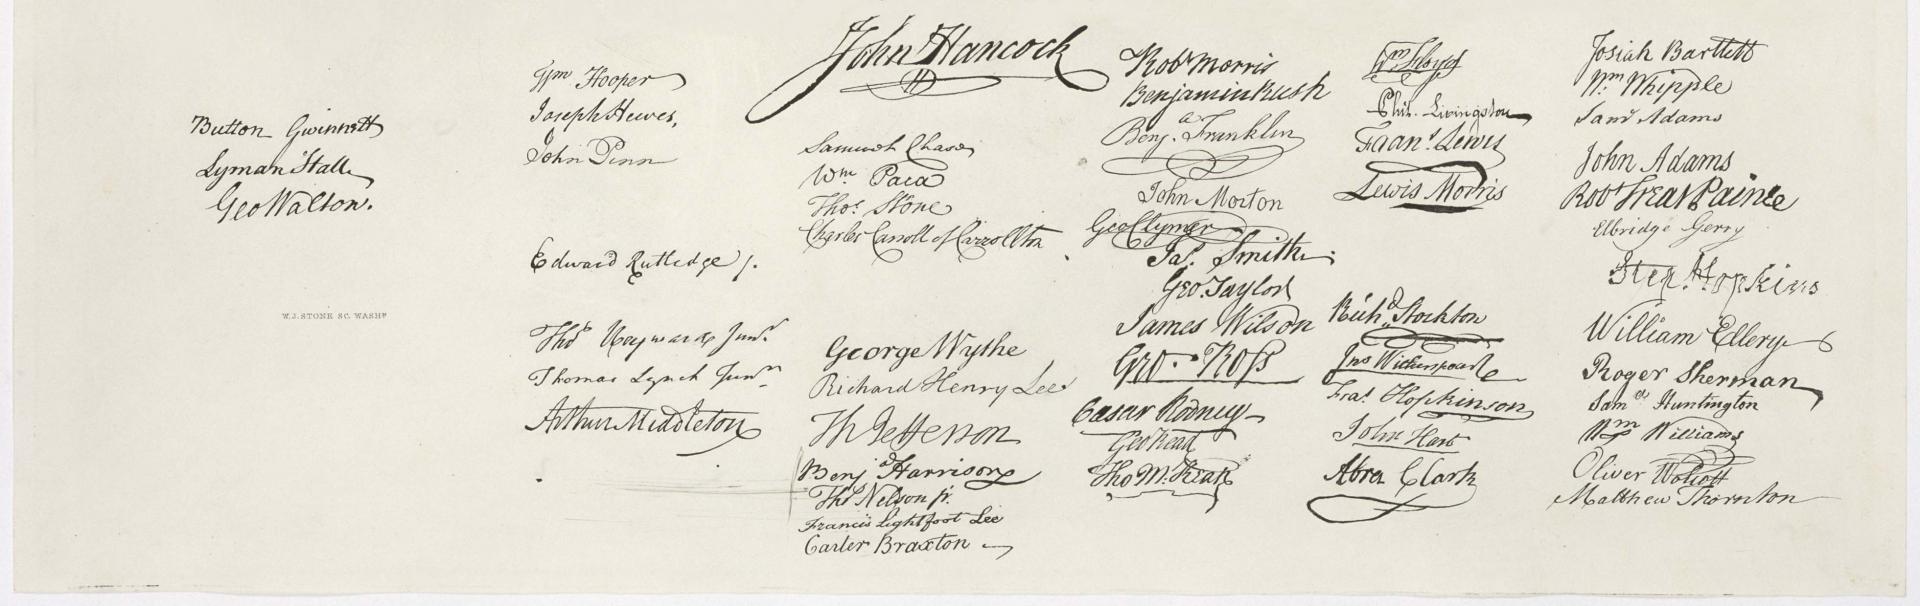 Button Gwinnett
Lyman Hall
Geo Walton.
W. J. STONE SC. WASHN
Wm Hooper
Joseph Hewes,
John Penn
Edward Rutledge /.
Thos Heyward Junr.
Thomas Lynch Junr.
Arthur Middleton
John Hancock
Samuel Chase
Wm. Paca
Thos. Stone
Charles Carroll of Carrollton
George Wythe
Richard Henry Lee
Th Jefferson
Benj Harrison
Thos Nelson jr.
Francis Lightfoot Lee
Carter Braxton
Robt Morris
Benjamin Rush
Benja. Franklin
John Morton
Geo Clymer
Jas. Smith
Geo. Taylor
James Wilson
Geo. Ross
Caesar Rodney
Geo Read
Tho M:Kean
Wm Floyd
Phil. Livingston
Frans. Lewis
Lewis Morris
Richd. Stockton
Jno Witherspoon
Fras. Hopkinson
John Hart
Abra Clark
Josiah Bartlett
Wm. Whipple
Saml Adams
John Adams
Robt Treat Paine
Elbridge Gerry
Step. Hopkins
William Ellery
Roger Sherman
Samel Huntington
Wm Williams
Oliver Wolcott
Matthew Thornton